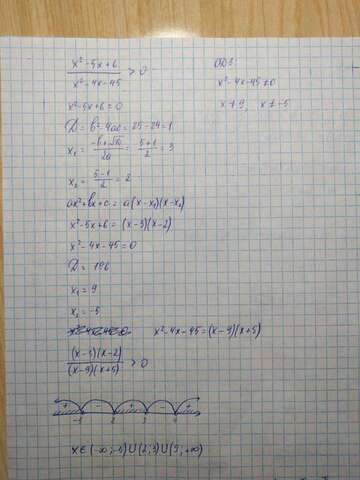 (x²-5x+6)/(x²-4x-45) > 0
ОДЗ:
x²-4x-45≠0
x≠9, x≠-5
x²-5x+6=0
D=b²-4ac=25-24=1
x₁ = (-b+√D)/2a = (5+1)/2 = 3
x₂ = (5-1)/2 = 2
ax²+bx+c=a(x-x₁)(x-x₂)
x²-5x+6=(x-3)(x-2)
x²-4x-45=0
D=196
x₁=9
x₂=-5
x²-4x-45=(x-9)(x+5)
(x-3)(x-2)/(x-9)(x+5) > 0
+ - + - +
-5 2 3 9
x∈(-∞;-5)∪(2;3)∪(9;+∞)